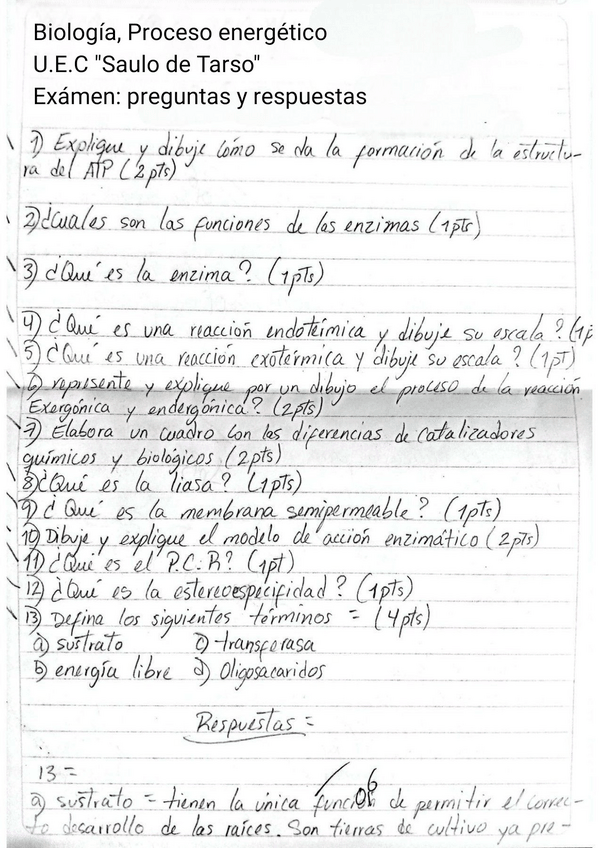 Biología, Proceso energético
U.E.C "Saulo de Tarso"
Exámen: preguntas y respuestas
1) Explique y dibuje Cómo se da la formación de la estructu-
ra del ATP (2pts)
2) ¿Cuales son las funciones de las enzimas (1pts)
3) ¿Qué es la enzima? (1pts)
4) ¿Qué es una reacción endotérmica y dibuje su escala? (1p
5) ¿Qué es una reacción exotérmica y dibuje su escala? (1pt)
6) represente y explique por un dibujo el proceso de la reacción
Exergónica y endergónica? (2pts)
7) Elabora un cuadro con las diferencias de Catalizadores
químicos y biológicos (2pts)
8) ¿Qué es la liasa? (1pts)
9) ¿Qué es la membrana semipermeable? (1pts)
10) Dibuje y explique el modelo de acción enzimático (2pts)
11) ¿Qué es el P.C.R? (1pt)
12) ¿Qué es la estereoespecifidad? (1pts)
13) Defina los siguientes términos = (4pts)
a) sustrato c) transferasa
b) energía libre d) Oligosacaridos
Respuestas =
13 =
06
a) sustrato = tienen la única función de permitir el correc-
to desarrollo de las raíces. Son tierras de cultivo ya pre-